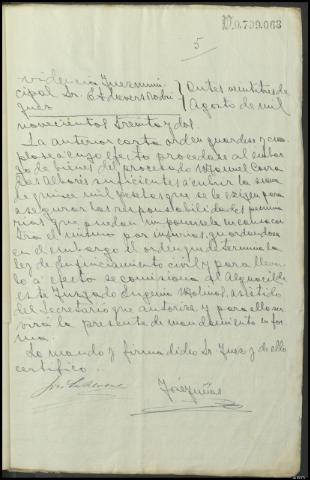 D0.709.068
5
videncia Juez muni
cipal Sr. Estevez Rodri
guez
Antes veintitres de
Agosto de mil
novecientos treinta y dos.
La anterior carta orden guardese y cum
plase a cuyo efecto procedase al embar
go de bienes del procesado Manuel
suficientes a cubrir la suma
de quince mil pesetas que se le exigen para
asegurar las responsabilidades pecunia
rias que puedan imponersele en causa con
tra el mismo por injurias, guardandose
en el embargo el orden que determina la
ley de Enjuiciamiento civil y para llevar
lo a efecto se comisiona al Alguacil de
este Juzgado Eugenio Molina, asistido
del Secretario que autoriza, y para ello ser
vira la presente de mandamiento en for
ma.
Lo mando y firma dicho Sr Juez y de ello
certifico.